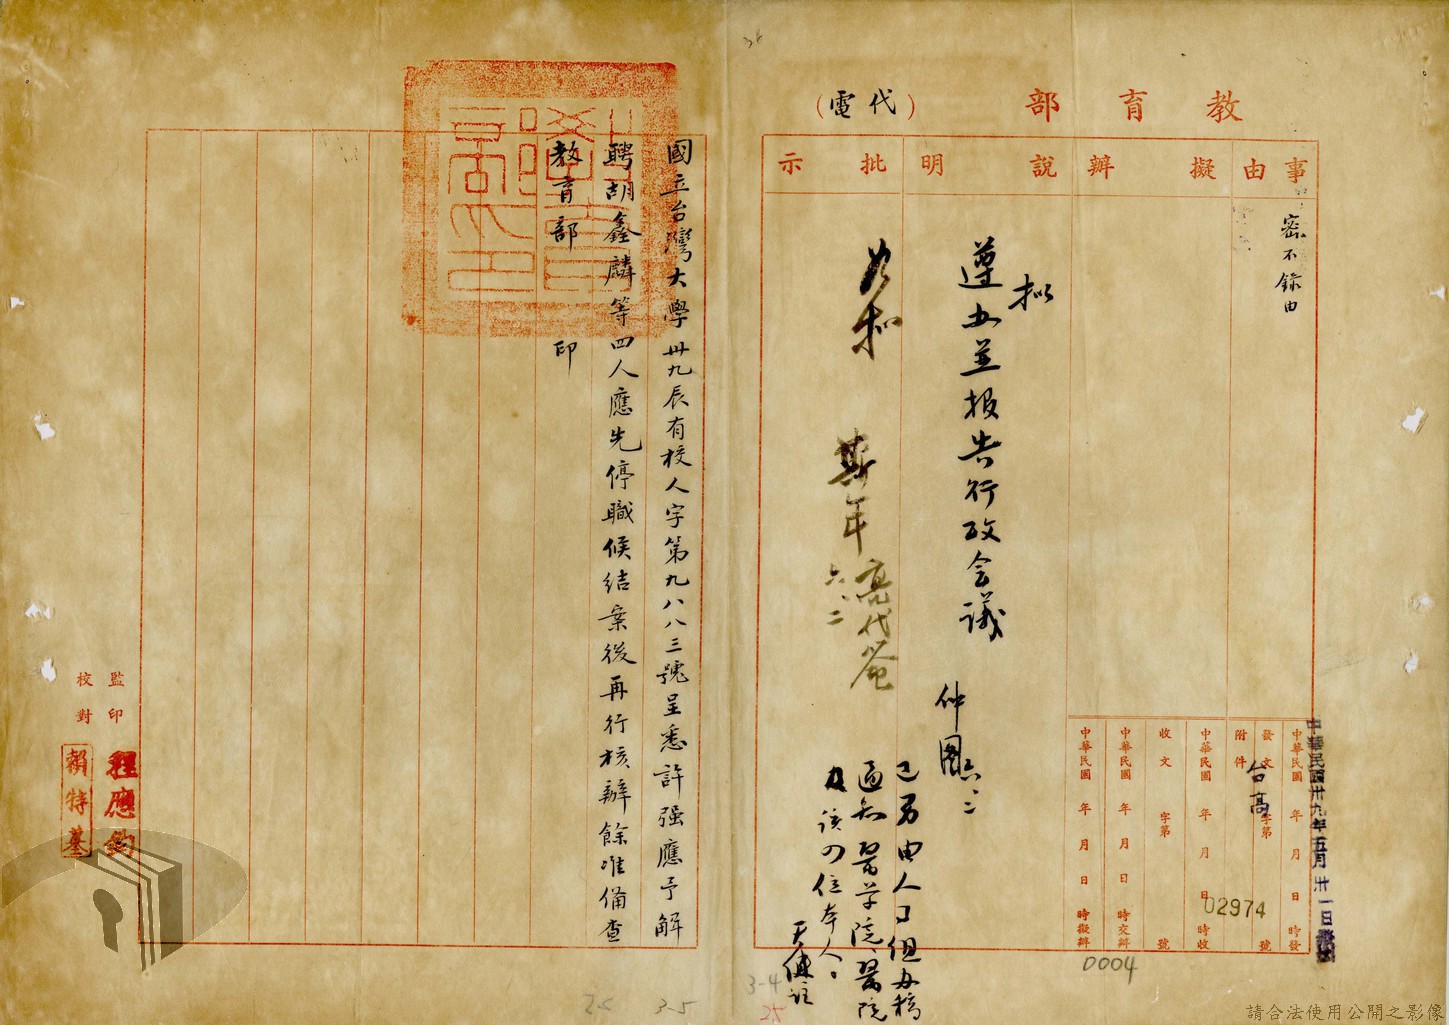 教育部
（代電）
事由
擬辦
說明
批示
密不錄由
拟
遵办並报告行政会議
仲
六、二
如拟
斯年
六、二
已另由人事组办稿
通知醫学院醫院
及该四位本人。
中華民國卅九年五月卅一日
中華民國 年 月 日 時發
發文 台高 字第 02974 號
附件
中華民國 年 月 日 時收
收文 字第 號
中華民國 年 月 日 時交辦
中華民國 年 月 日 時擬辦
0004
國立台灣大學卅九辰有校人字第九八八三號呈悉許强應予解
聘胡鑫麟等四人應先停職候結案後再行核辦餘准備查
教育部 印
監印
程應鈞
校對
賴特基
3-4
25
3-5
請合法使用公開之影像